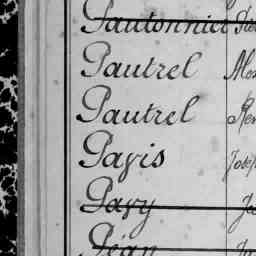 Pautonnier
Pautrel Alex
Pautrel Ren
Pavis Josep
Pavy Je
Péan